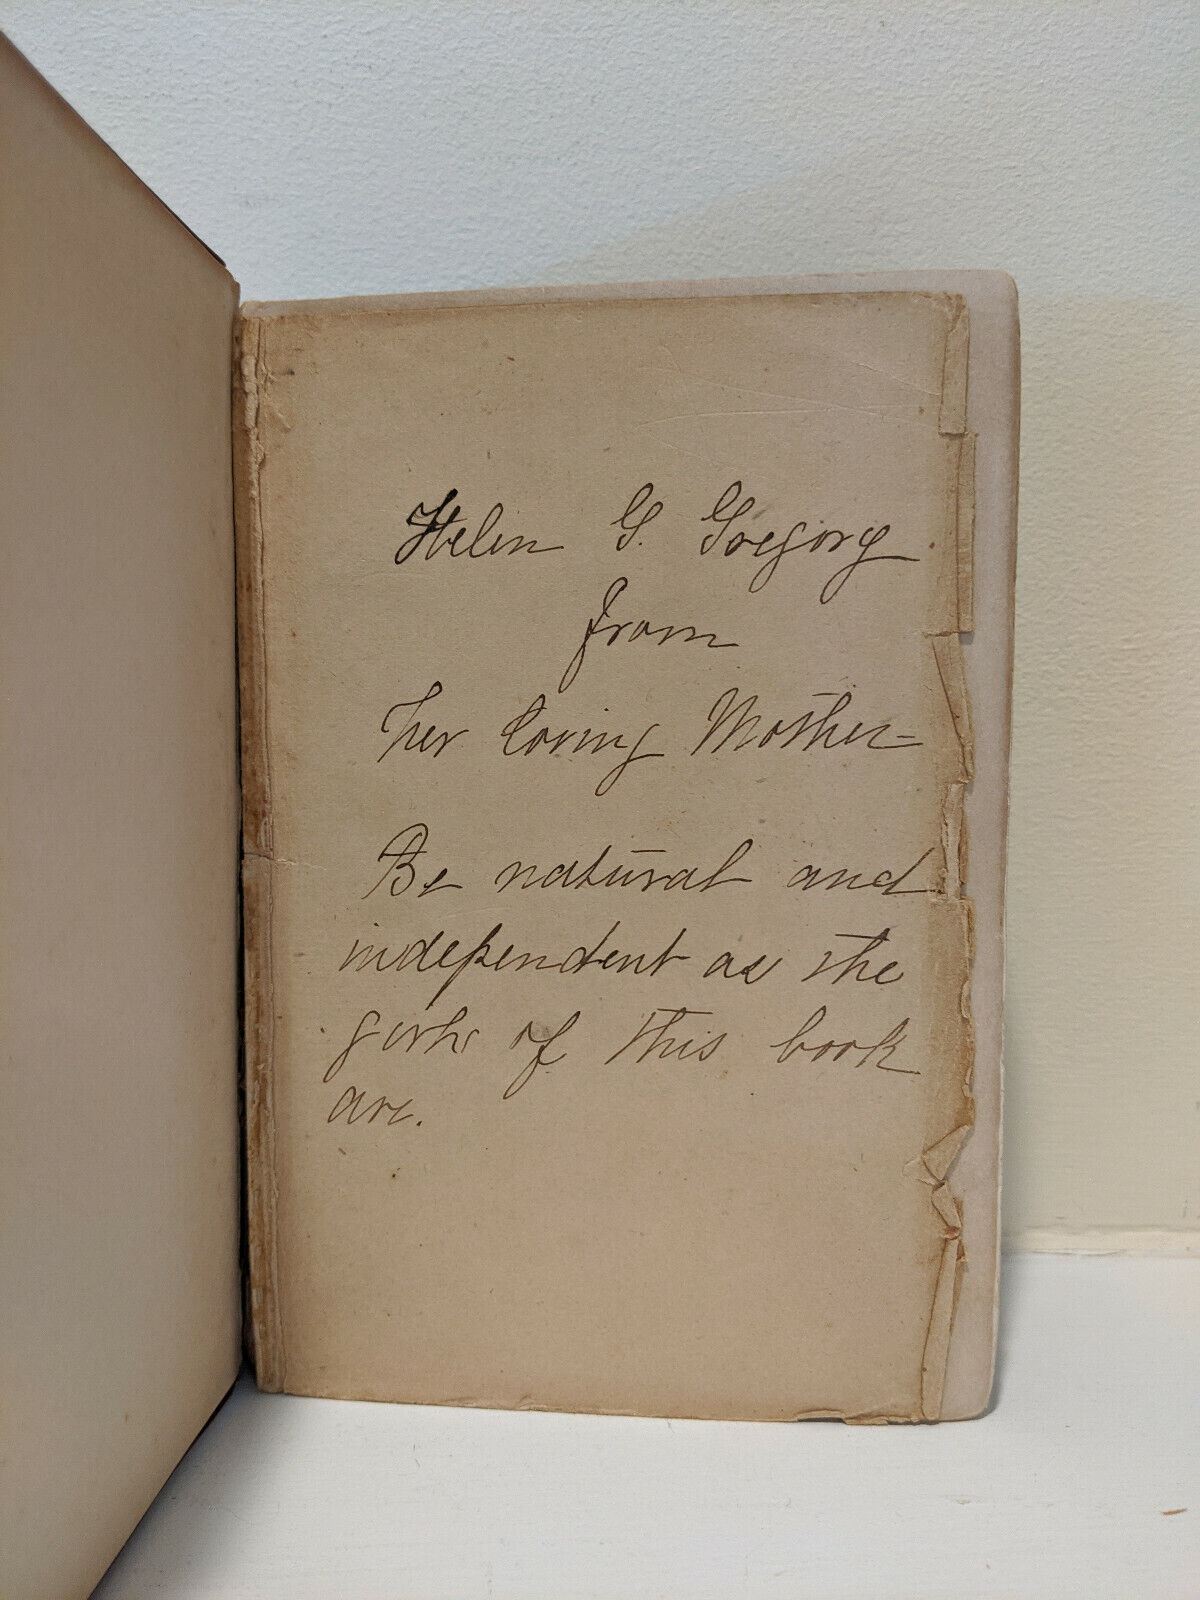 Helen G. Gregory
from
her loving Mother–
Be natural and
independent as the
girls of this book
are.